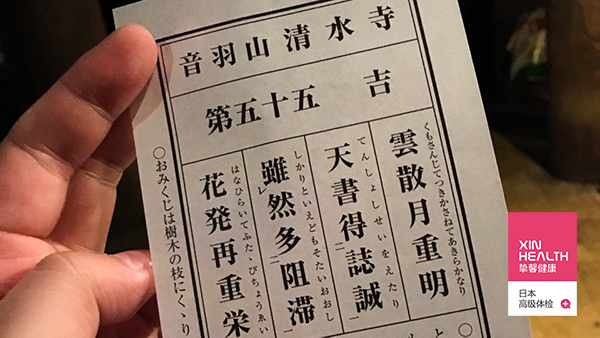 音羽山清水寺
第五十五 吉
くもさんじてつきかさねてあきらかなり
雲散月重明
てんしょしせいをえたり
天書得二誌誠一
しかりといえどもそたいおおし
雖レ然多二阻滞一
はなひらいてふたゝびちょうゑい
花発再重栄
○おみくじは樹木の枝にくゝり
XIN
HEALTH
挚馨健康
日本
高级体检